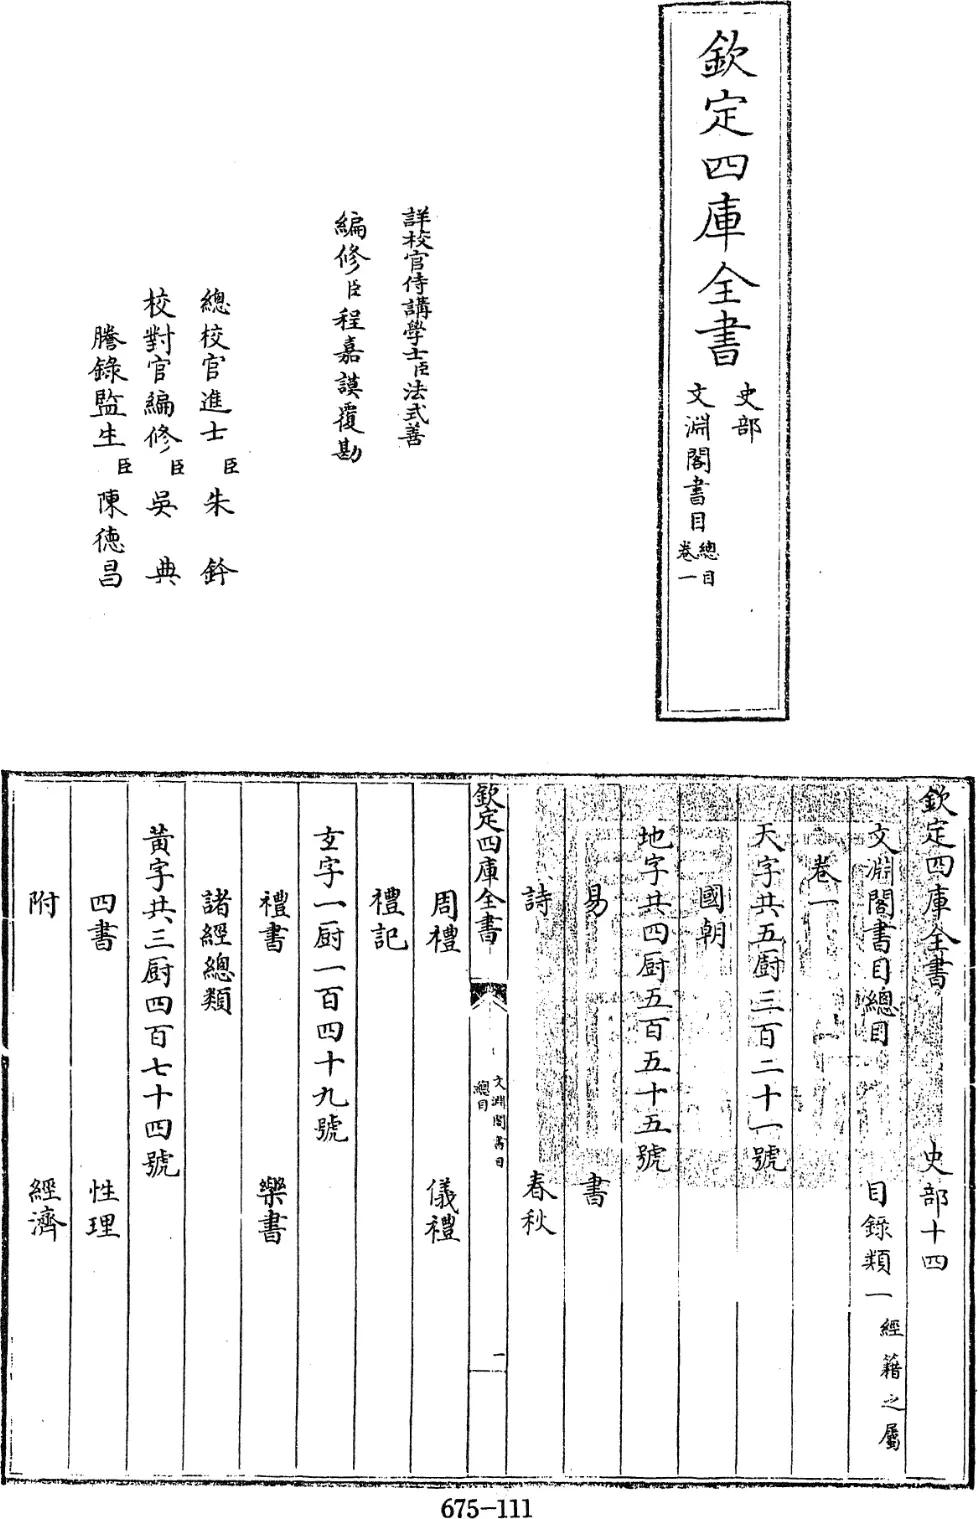 欽定四庫全書
史部
文淵閣書目
總目
卷一
詳校官侍講學士臣法式善
編修臣程嘉謨覆勘
總校官進士臣朱鈐
校對官編修臣吳典
謄錄監生臣陳德昌
欽定四庫全書 史部十四
文淵閣書目總目 目錄類一經籍之屬
卷一
天字共五厨三百二十一號
國朝
地字共四厨五百五十五號
易 書
詩 春秋
欽定四庫全書
文淵閣書目
總目
一
周禮 儀禮
禮記
玄字一厨一百四十九號
禮書 樂書
諸經總類
黃字共三厨四百七十四號
四書 性理
附 經濟
675-111